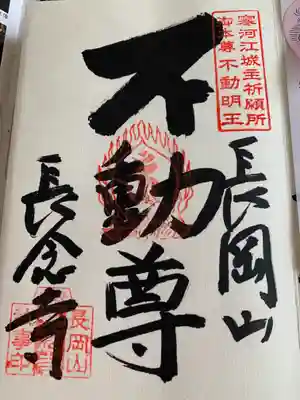 寒河江城主祈願所
御本尊不動明王
長岡山
不動尊
長念寺
長岡山